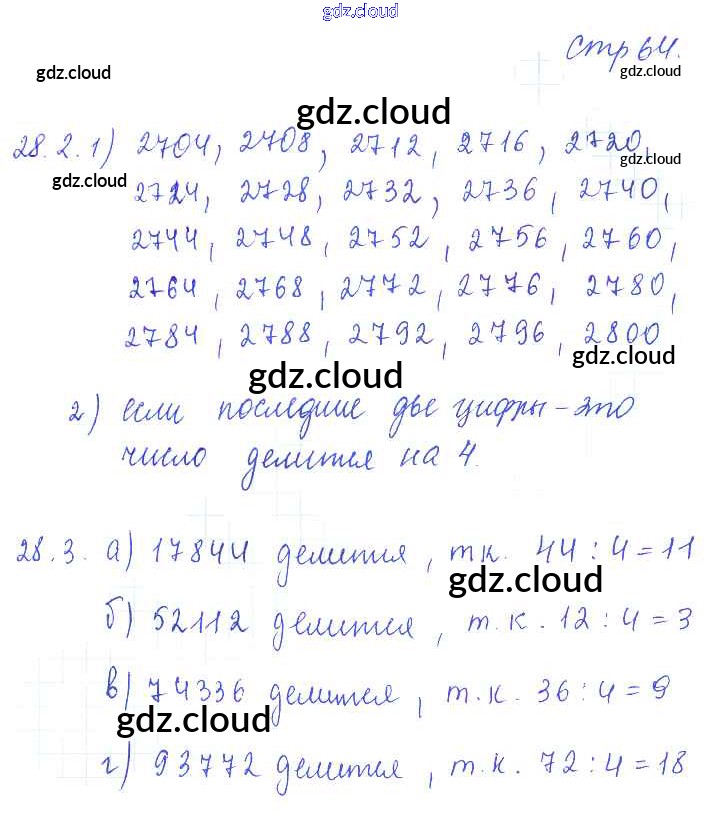 gdz.cloud
стр 64.
gdz.cloud gdz.cloud
gdz.cloud
28.2.1) 2704, 2708, 2712, 2716, 2720,
gdz.cloud gdz.cloud
2724, 2728, 2732, 2736, 2740,
2744, 2748, 2752, 2756, 2760,
2764, 2768, 2772, 2776, 2780,
2784, 2788, 2792, 2796, 2800
gdz.cloud gdz.cloud
2) если последние две цифры - это
число делится на 4.
28.3. а) 17844 делится, т.к. 44 : 4 = 11
gdz.cloud
б) 52112 делится, т.к. 12 : 4 = 3
в) 74336 делится, т.к. 36 : 4 = 9
gdz.cloud
г) 93772 делится, т.к. 72 : 4 = 18